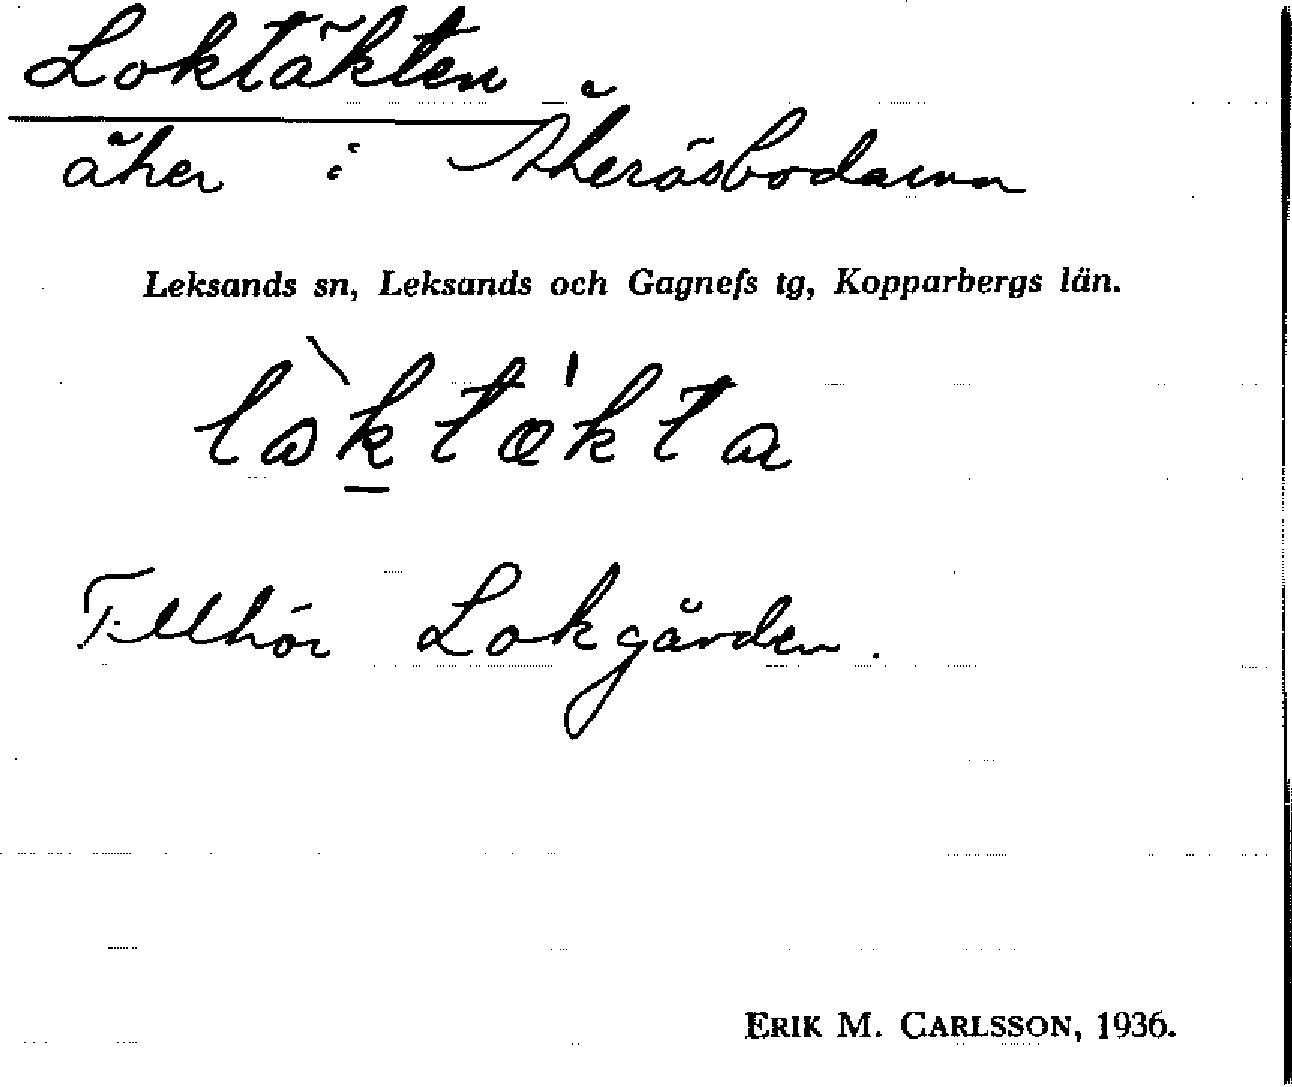 Loktäkten
åker i Åkeräsbodarna
Leksands sn, Leksands och Gagnefs tg, Kopparbergs län.
lòktækta
Tillhör Lokgården.
ERIK M. CARLSSON, 1936.